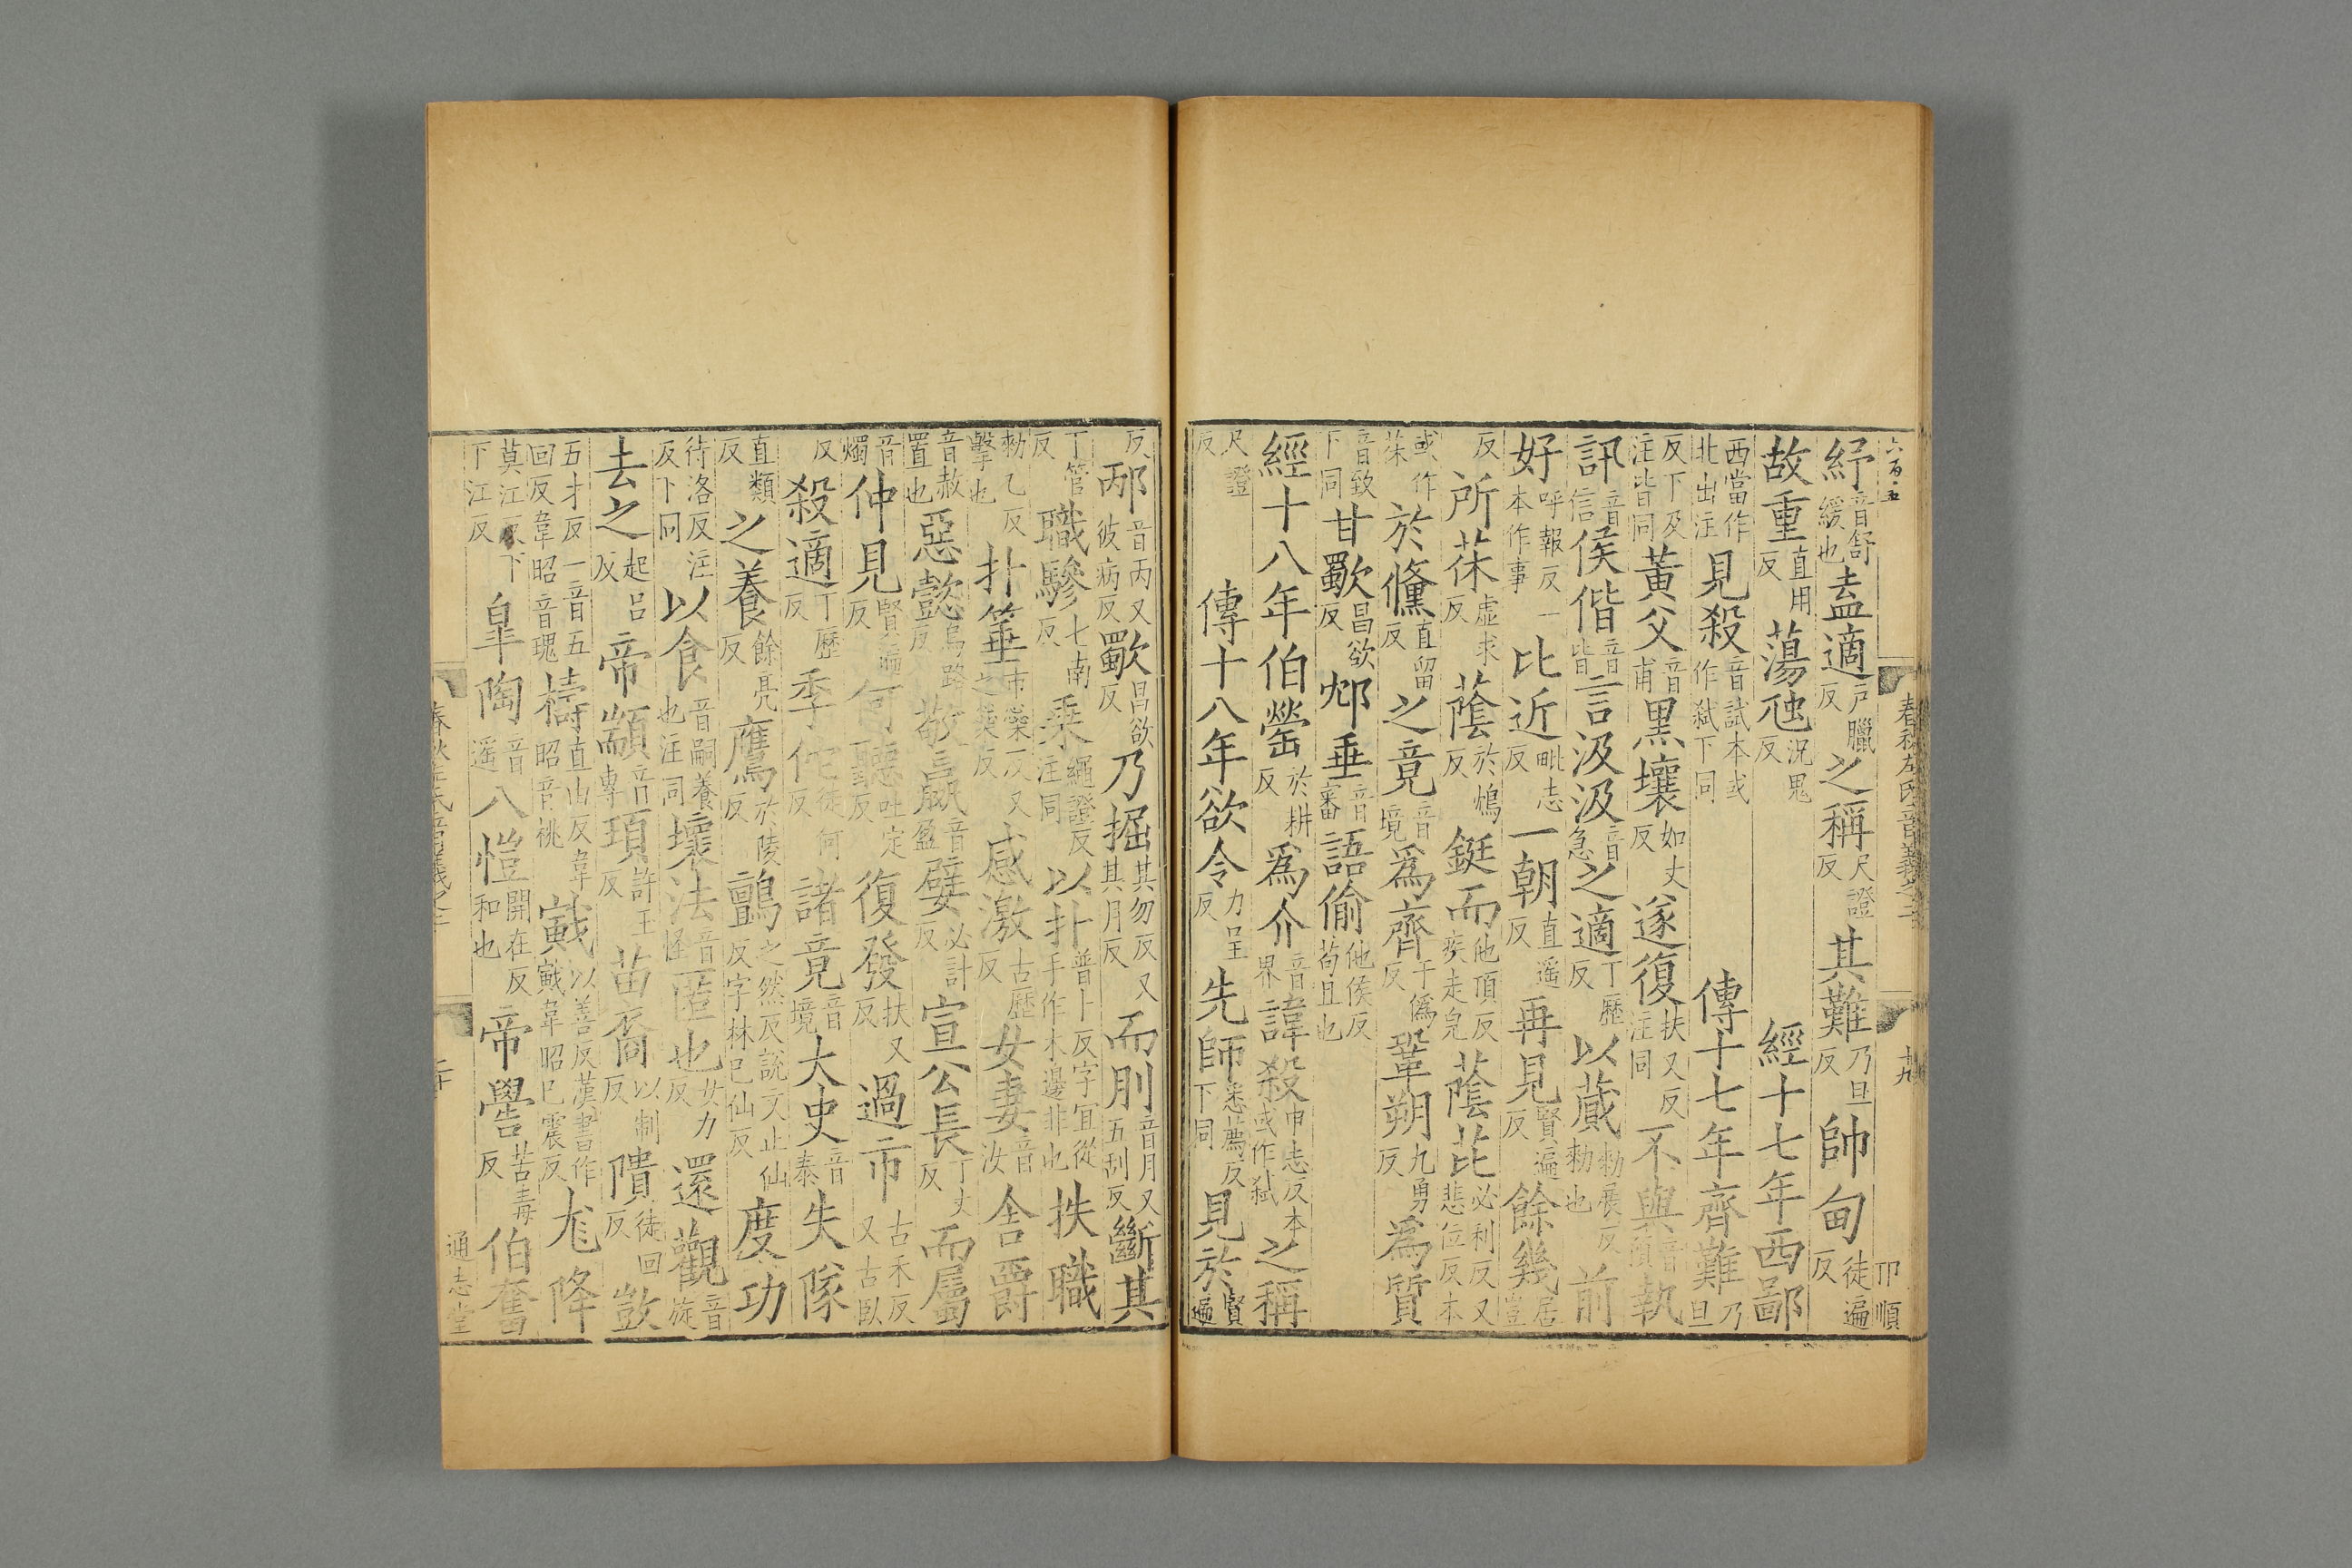 六百五
春秋左氏音義之二
九
卭順
紓音舒緩也盍適戸臘反之稱尺證反其難乃旦反帥甸徒遍反
故重直用反蕩虺況鬼反 經十七年西鄙
西當作北出注見殺音試本或作弑下同 傳十七年齊難乃旦
反下及注皆同黃父音甫黑壤如丈反遂復扶又反注同不與音預執
訊音信侯偕音皆言汲汲音急之適丁歷反以蕆勑展反勑也前
好呼報反一本作事比近毗志反一朝直遥反再見賢遍反餘幾居豈
反所茠虛求反蔭於鴆反鋌而他頂反疾走皃蔭芘必利反又悲位反本
或作茠於儵直留反之竟音境爲齊于僞反鞏朔九勇反為質
音致下同甘歜昌欲反邥垂音審語偷他侯反苟且也
經十八年伯罃於耕反爲介音界諱殺申志反本或作弑之稱
尺證反 傳十八年欲令力呈反先師悉薦反下同見於賢遍
反邴音丙又彼病反歜昌欲反乃掘其勿反又其月反而刖音月又五刮反斷其
丁管反職驂七南反乗繩證反注同以扑普卜反字宜從手作木邊非也抶職
勑乙反擊也扑箠市橤反又之橤反感激古歷反女妻音汝舍爵
音赦置也惡懿烏路反敬嬴音盈嬖必計反宣公長丁丈反而屬
音燭仲見賢遍反何聽吐定反復發扶又反過市古禾反又古臥
反殺適丁歷反季佗徒何反諸竟音境大史音泰失隊
直類反之養餘亮反鷹於陵反鸇之然反說文止仙反字林巳仙反度功
待洛反注及下同以食音嗣養也注同壞法音怪匿也女力反還觀音旋
去之起呂反帝顓音專頊許玉反苗裔以制反隤徒回反敳
五才反一音五回反韋昭音瑰檮直由反韋昭音桃戭以善反漢書作戭韋昭巳震反尨降
莫江反下下江反皐陶音遥八愷開在反和也帝嚳苦毒反伯奮
春秋左氏音義之二
二十
通志堂